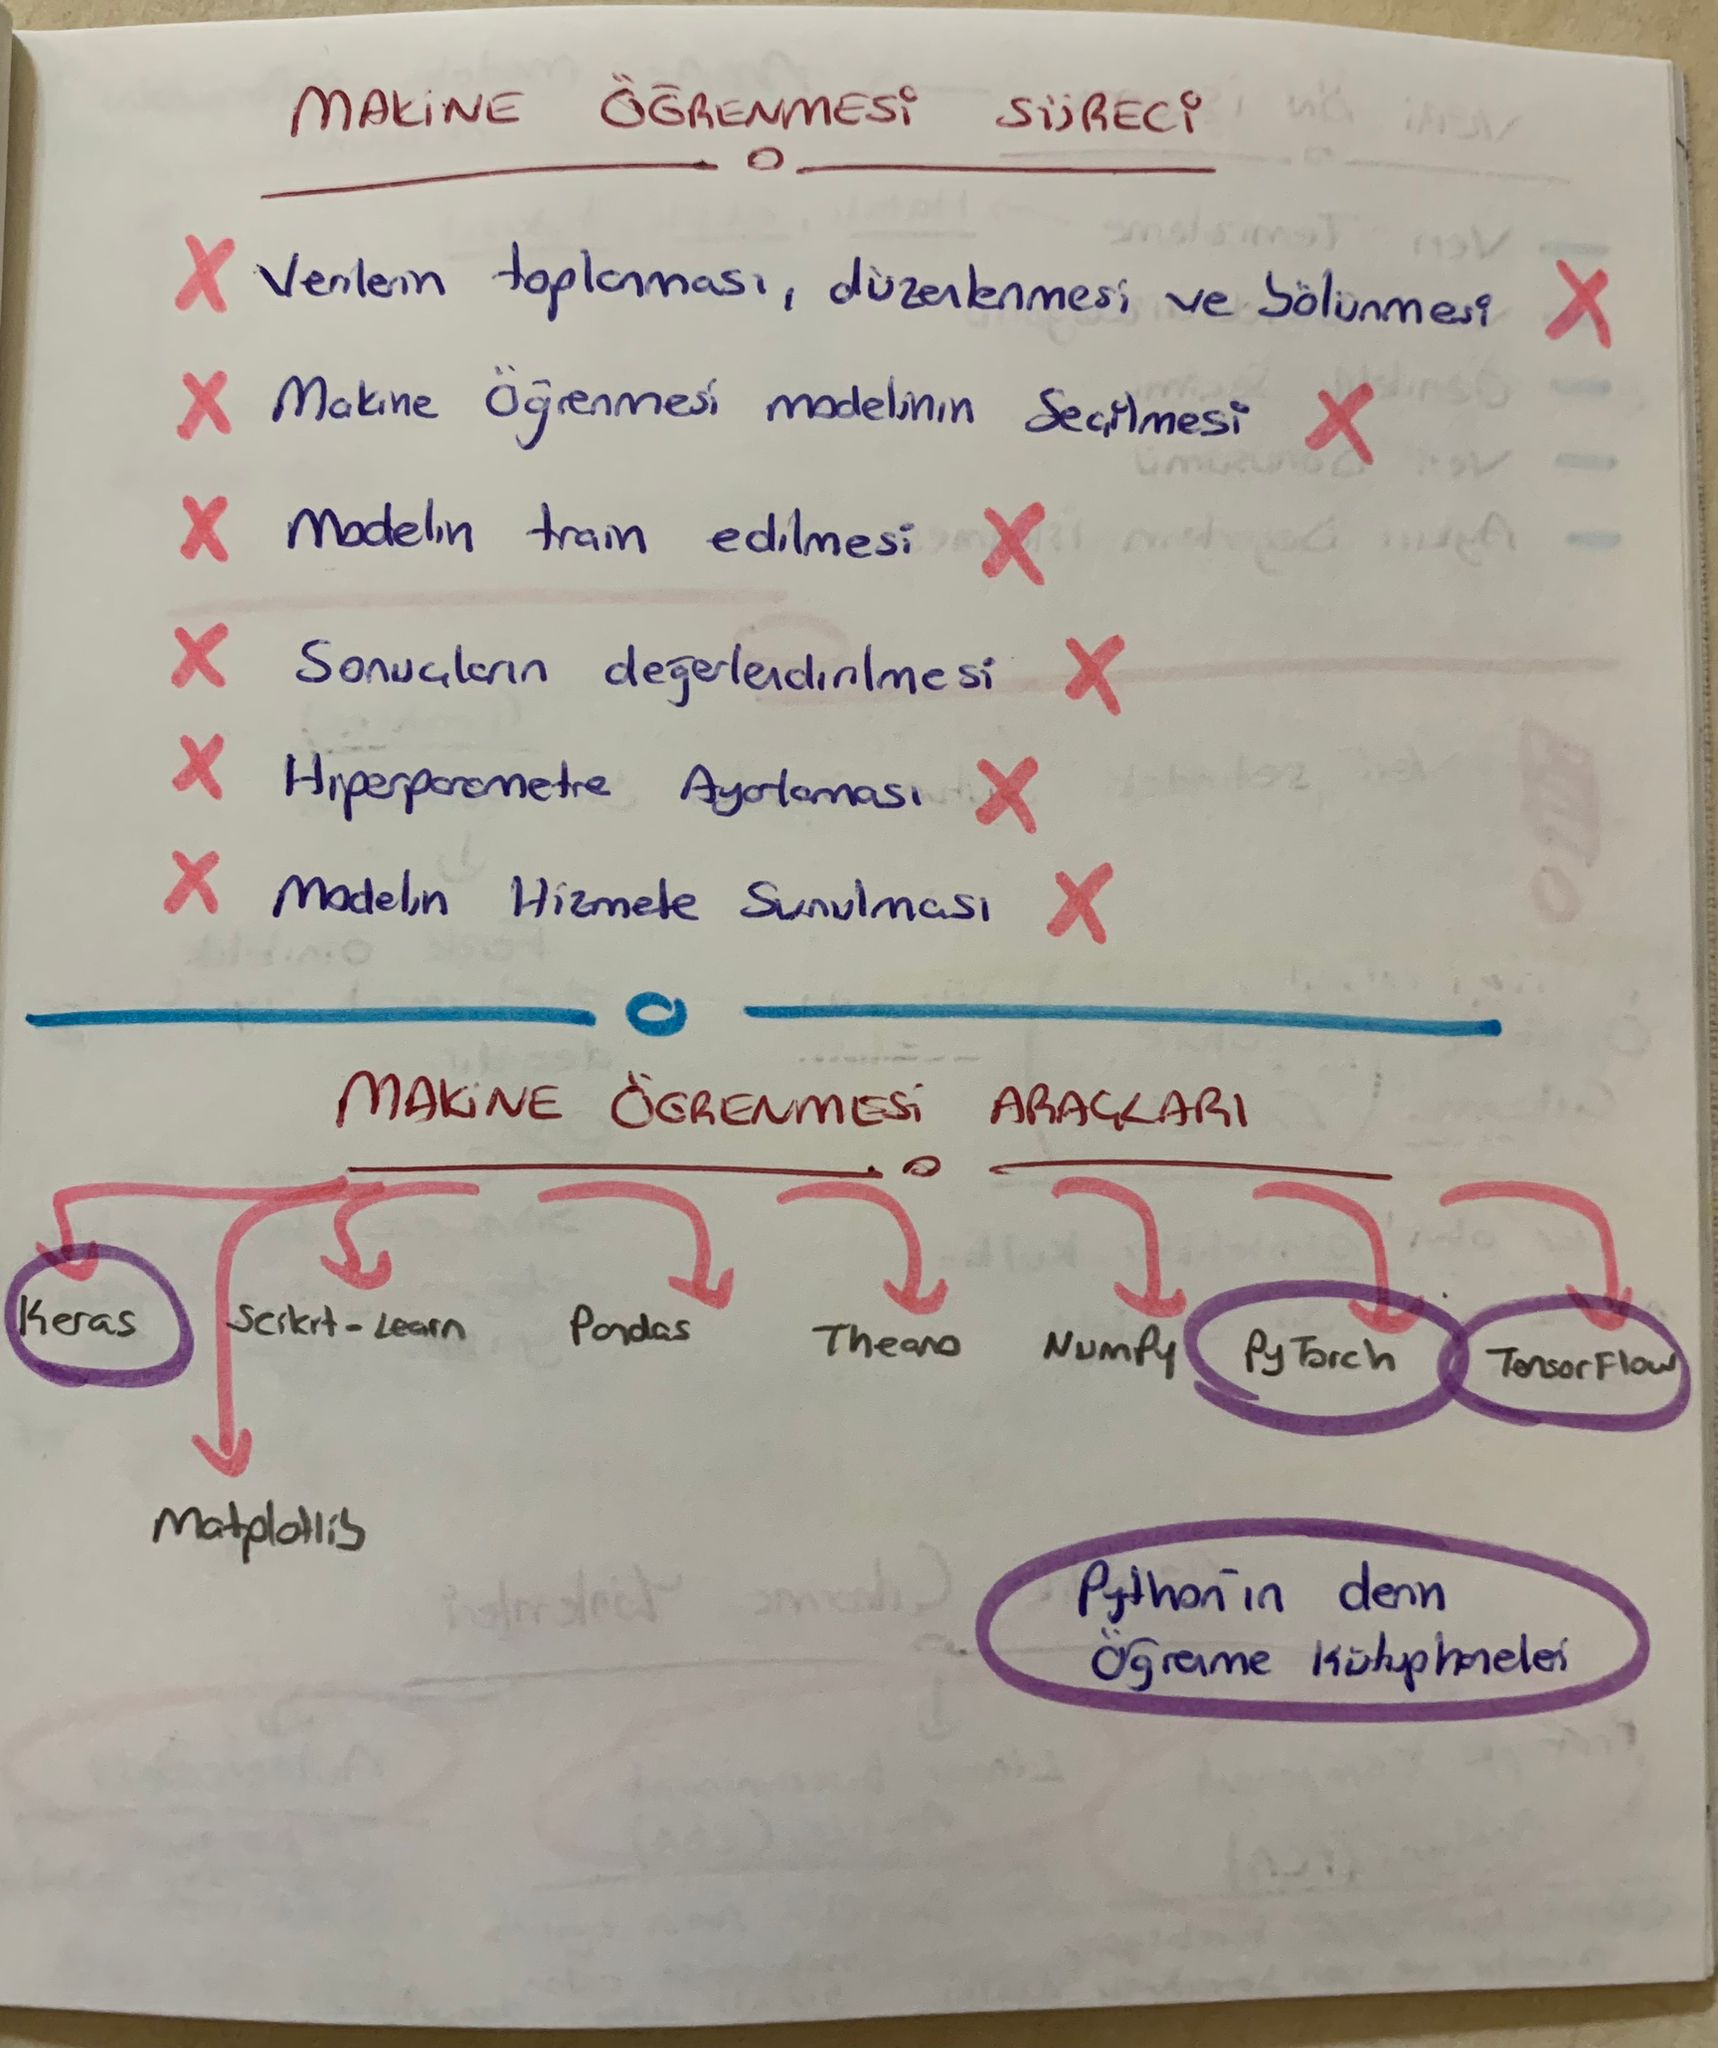 MAKİNE ÖĞRENMESİ SÜRECİ
Verilerin toplanması, düzenlenmesi ve bölünmesi
Makine Öğrenmesi modelinin Seçilmesi
Modelin train edilmesi
Sonuçların değerlendirilmesi
Hiperparametre Ayarlaması
Modelin Hizmete Sunulması
MAKİNE ÖĞRENMESİ ARAÇLARI
Keras Scikit-Learn Pandas Theano NumPy PyTorch TensorFlow
Matplotlib
Python'ın derin
Öğrenme Kütüphaneleri